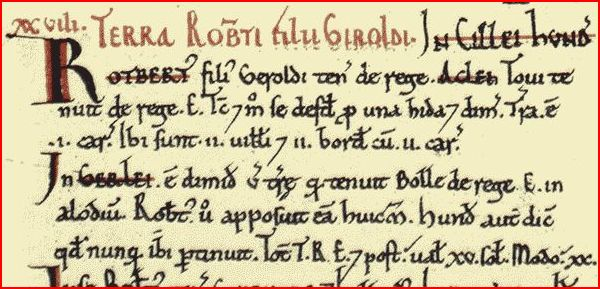 xxviii. TERRA ROB̃TI filii GIROLDI. In Cillei hund̃
ROTBERT' fili' Geroldi ten' de rege. ACLEI. Toui te
nuit de rege. E. Tc̃ 7 m̊ se def̃d p̲ una hida 7 dim̃. Tr̃a. ẽ
.i. car̃. Ibi sunt. ii. uiłłi 7 ii. borđ cũ. ii. car̃.
In GERLEI. ẽ dimiđ v̊ tr̃e q̃ tenuit Bolle de rege. E. in
alodiũ. Rob̃t' ů apposuit eã huic m̃. Hunđ aut̃ dic̃
qđ nunq̃ ibi p̲tinuit. Tot̃ T.R.E. 7 post. uał. xv. soł. Modo. xx.